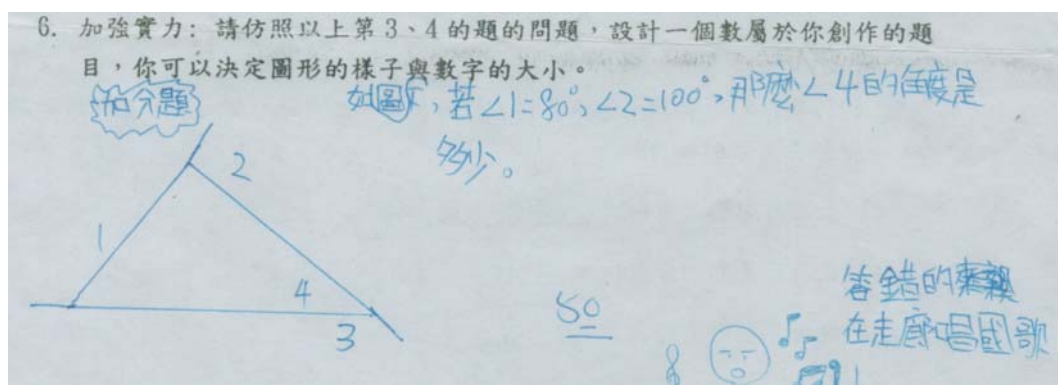 6. 加強實力: 請仿照以上第3、4的題的問題,設計一個數屬於你創作的題
目,你可以決定圖形的樣子與數字的大小。
加分題
如圖,若∠1=80°,∠2=100°,那麼∠4的角度是
多少。
2
1
4
3
50
答錯的
在走廊唱國歌